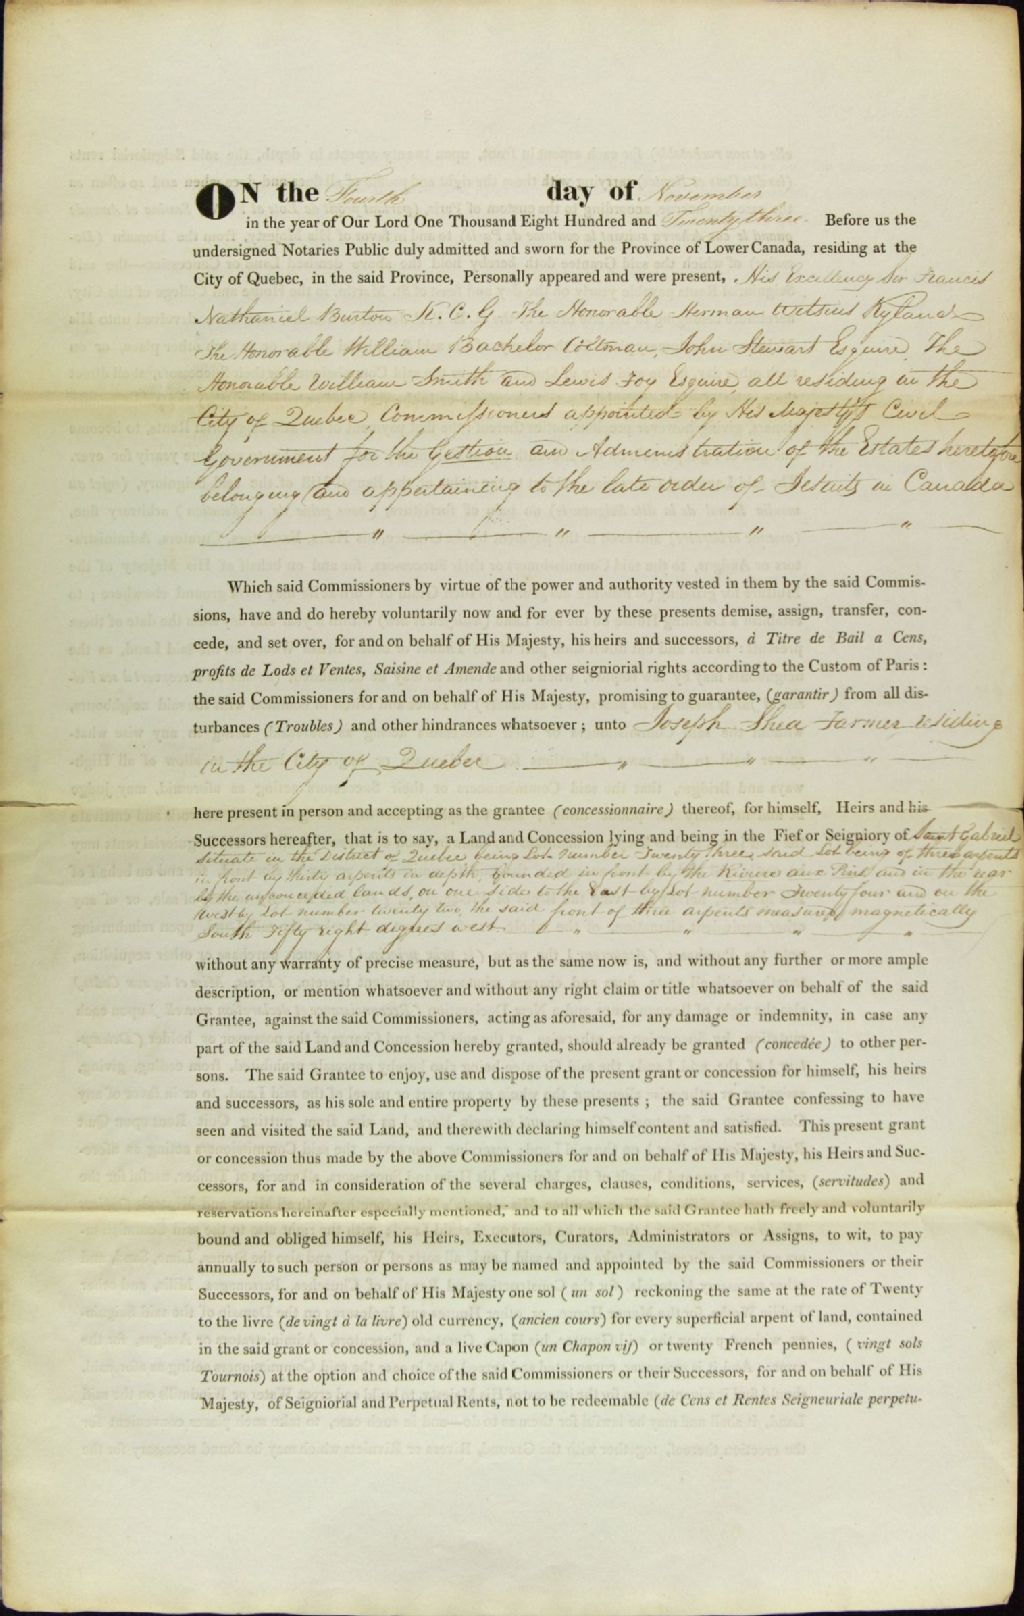 ON the Fourth day of November
in the year of Our Lord One Thousand Eight Hundred and Twenty three. Before us the
undersigned Notaries Public duly admitted and sworn for the Province of Lower Canada, residing at the
City of Quebec, in the said Province, Personally appeared and were present, His Excellency Sir Francis
Nathaniel Burton K. C. G The Honorable Herman Witsius Ryland
The Honorable William Bachelor Coltman, John Stewart Esquire, The
Honorable William Smith and Lewis Foy Esquire, all residing in the
City of Quebec, Commissioners appointed by His Majesty's Civil
Government for the Gestion and Administration of the Estates heretofore
belonging and appertaining to the late order of Jesuits in Canada
" " " "
Which said Commissioners by virtue of the power and authority vested in them by the said Commis-
sions, have and do hereby voluntarily now and for ever by these presents demise, assign, transfer, con-
cede, and set over, for and on behalf of His Majesty, his heirs and successors, à Titre de Bail a Cens,
profits de Lods et Ventes, Saisine et Amende and other seigniorial rights according to the Custom of Paris :
the said Commissioners for and on behalf of His Majesty, promising to guarantee, (garantir) from all dis-
turbances (Troubles) and other hindrances whatsoever ; unto Joseph Shea Farmer residing
in the City of Quebec " " "
here present in person and accepting as the grantee (concessionnaire) thereof, for himself, Heirs and his
Successors hereafter, that is to say, a Land and Concession lying and being in the Fief or Seigniory of Saint Gabriel
situate in the District of Quebec being Lot Number Twenty three, said Lot being of three arpents
in front by thirty arpents in depth, bounded in front by the Riviere aux Pins and in the rear
by the unconceded lands, on one side to the East by Lot number Twenty four and on the
west by Lot number twenty two, the said front of three arpents measured magnetically
South Fifty eight degrees west. " " " "
without any warranty of precise measure, but as the same now is, and without any further or more ample
description, or mention whatsoever and without any right claim or title whatsoever on behalf of the said
Grantee, against the said Commissioners, acting as aforesaid, for any damage or indemnity, in case any
part of the said Land and Concession hereby granted, should already be granted (concedée) to other per-
sons. The said Grantee to enjoy, use and dispose of the present grant or concession for himself, his heirs
and successors, as his sole and entire property by these presents ; the said Grantee confessing to have
seen and visited the said Land, and therewith declaring himself content and satisfied. This present grant
or concession thus made by the above Commissioners for and on behalf of His Majesty, his Heirs and Suc-
cessors, for and in consideration of the several charges, clauses, conditions, services, (servitudes) and
reservations hereinafter especially mentioned, and to all which the said Grantee hath freely and voluntarily
bound and obliged himself, his Heirs, Executors, Curators, Administrators or Assigns, to wit, to pay
annually to such person or persons as may be named and appointed by the said Commissioners or their
Successors, for and on behalf of His Majesty one sol (un sol) reckoning the same at the rate of Twenty
to the livre (de vingt à la livre) old currency, (ancien cours) for every superficial arpent of land, contained
in the said grant or concession, and a live Capon (un Chapon vif) or twenty French pennies, (vingt sols
Tournois) at the option and choice of the said Commissioners or their Successors, for and on behalf of His
Majesty, of Seigniorial and Perpetual Rents, not to be redeemable (de Cens et Rentes Seigneuriale perpetu-